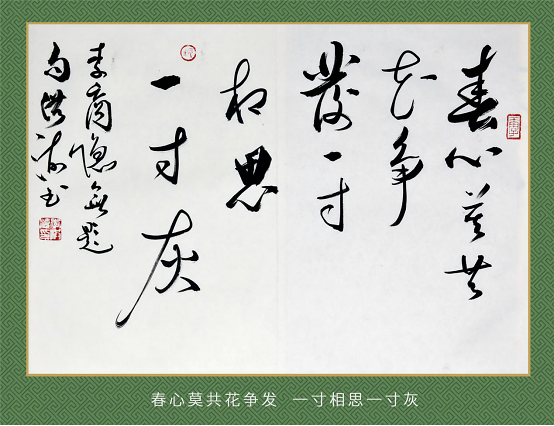 春心莫共
花争
發一寸
相思
一寸灰
李商隐無题
句
春心莫共花争发 一寸相思一寸灰